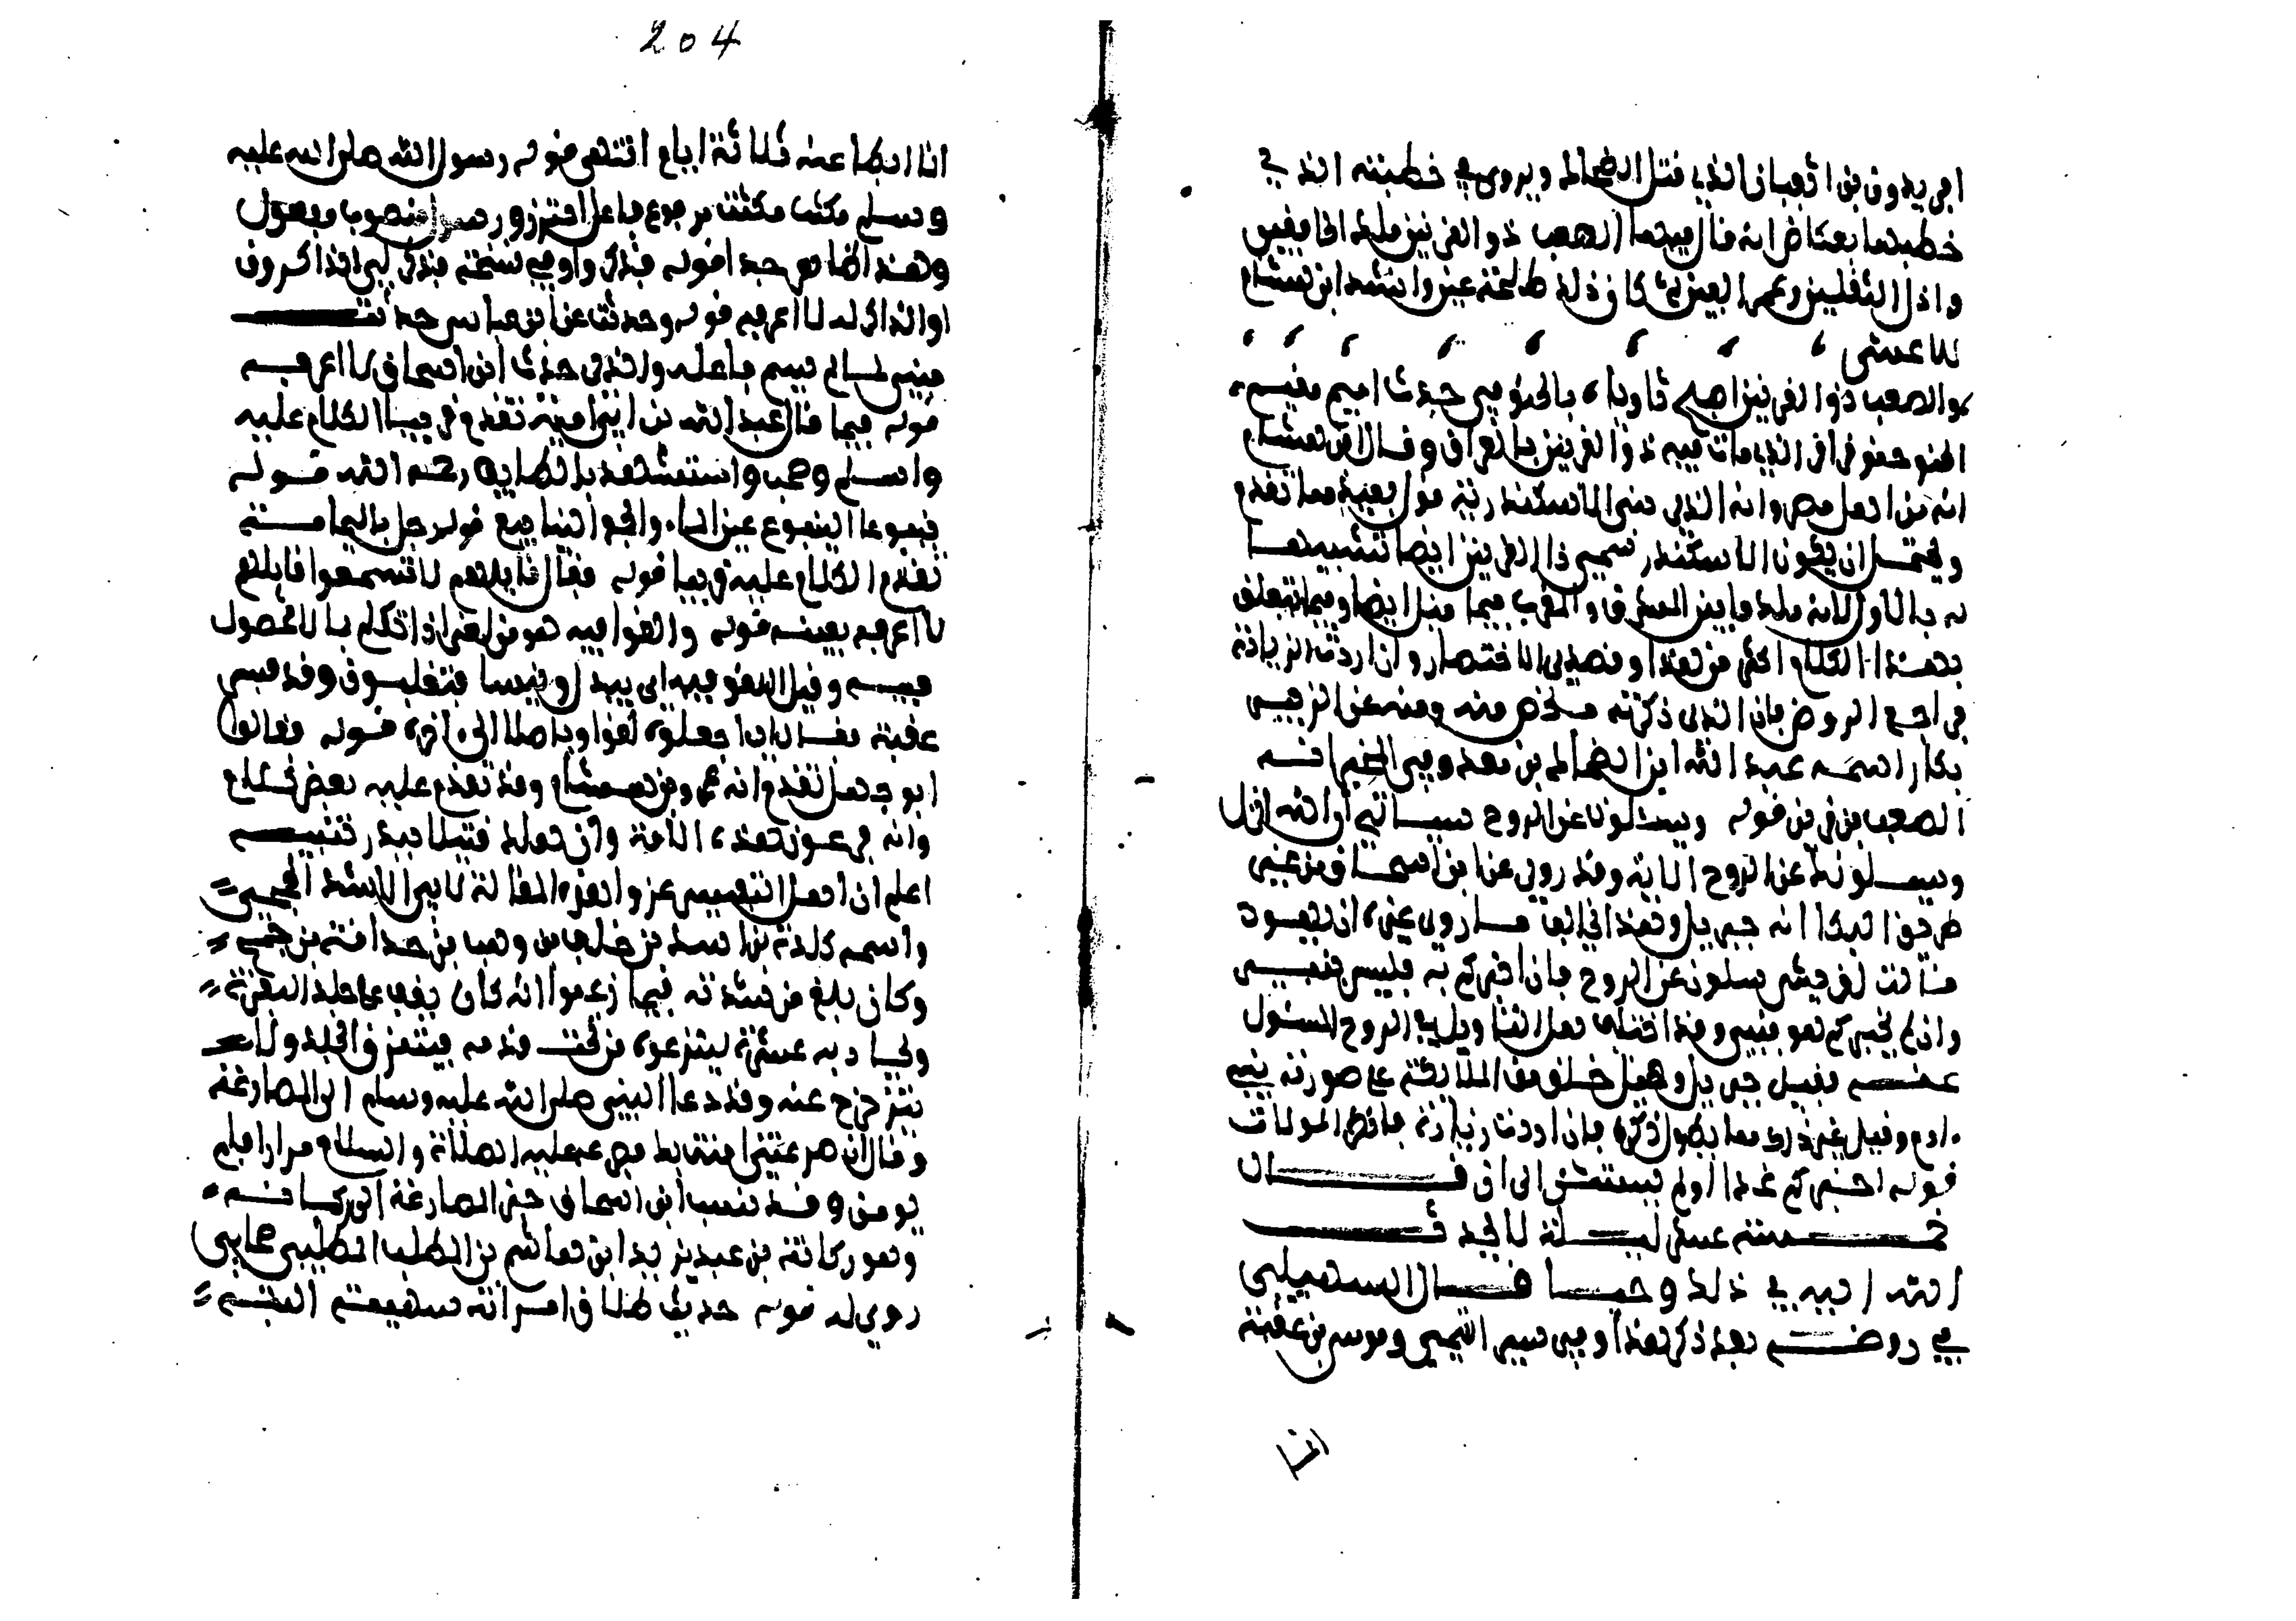 افريدون بن اثفيان الذي قتل الضحاك ويروى في خطبة قس التي
خطبها بعكاظ انه قال فيها الصعب ذو القرنين ملك الخافقين
واذل الثقلين وعمر الفين ثم كان ذلك كلحظة عين وانشد ابن هشام
للاعشى
والصعب ذو القرنين اصبح ثاويا بالحنو في جدث اميم مقيم
الحنو حنو قراقر الذي مات فيه ذو القرنين بالعراق وقال ابن هشام
انه من اهل مصر وانه الذي بنى الاسكندرية قول بعيد مما تقدم
ويحتمل ان يكون الاسكندر سمي ذا القرنين ايضا تشبيها
له بالاول لانه ملك ما بين المشرق والمغرب فيما قيل ايضا وفيما يتعلق
بهذا الكلام اكثر من هذا وقصدي الاختصار وان اردت الزيادة
فراجع الروض فان الذي ذكرته ملخص منه ومنه عن الزبير بن
بكار اسمه عبد الله ابن الضحاك بن معد وفي الخبر انه
الصعب بن قرين قوله ويسئلونك عن الروح سياتي ان الله انزل
ويسـلونك عن الروح الاية وقد روي عن ابن اسحاق من غير
طريق البكا انه جبريل وهذا في الف ما روى غيره ان يهود
قالت لقريش سلوه عن الروح فان اخبركم به فليس بنبي
وان لم يخبركم فهو نبي وقد اختلف اهل التاويل في الروح المسئول
عنه فقيل جبريل وقيل خلق من الملائكة على صورة بني
ءادم وقيل غير ذلك مما يطول ذكره فان اردت زيادة فانظر المولفات
قوله اخبركم غدا ولم يستثن الى ان قال
خمسة عشر ليلة لا يحدث
الله اليه في ذلك وحيا قال السهيلي
في روضه بعد ذكر هذا وفي سير التيمي وموسى بن عقبة
انا
204
انا ابطا عنه ثلاثة ايام انتهى قوله رسول الله صلى الله عليه
وسلم مكث مكث مرفوع فاعل احزن ورسول منصوب مفعول
وهذا ظاهر جدا قوله فيذكر واو في نسخة فيذكر لي الذاكرون
او الذاكر له لا اعرفه قوله وحدثت عن ابن عباس حدثت
مبني لما لم يسم فاعله والذي حدث ابن اسحاق لا اعرفه
قوله فيما قال عبد الله بن ابي امية تقدم قريبا الكلام عليه
واسلم وصحب واستشهد بالطايف رحمه الله قوله
ينبوعا الينبوع عين الماء والجمع الينابيع قوله رجل باليمامة
تقدم الكلام عليه قريبا قوله فقال قايلهم لا تسمعوا قايلهم
لا اعرفه بعينه قوله والغوا فيه هو من لغى اذا تكلم بما لا محصول
فيه وقيل اللغو فيه اي ببدل ونيسا فتغلبون وقد فسره
عقبة فقال اي اجعلوه لغوا وباطلا الى ءاخره قوله فقال
ابو جهل تقدم انه عمرو بن هشام وقد تقدم عليه بعض كلام
وانه فرعون هذه الامة وانه هلك قتيلا ببدر تنبيه
اعلم ان اهل التفسير عزوا هذه المقالة لابي الاشد الجمحي
واسمه كلدة بن اسيد بن خلف بن وهب بن حذافة بن جمح
وكان بلغ من شدته فيما زعموا انه كان يقف على جلد البقرة
ويجاذبه عشرة لينتزعوه من تحت قدمه فيتمزق الجلد ولا
يتزحزح عنه وقد دعا النبي صلى الله عليه وسلم الى المصارعة
وقال ان صرعتني امنت بك فصرعه عليه الصلاة والسلام مرارا فلم
يومن وقد نسب ابن اسحاق خبر المصارعة الى ركانة
وهو ركانة بن عبد يزيد ابن هاشم بن المطلب المطلبي صحابي
روي له قوله حديث طلاق امراته سهيمة البتة